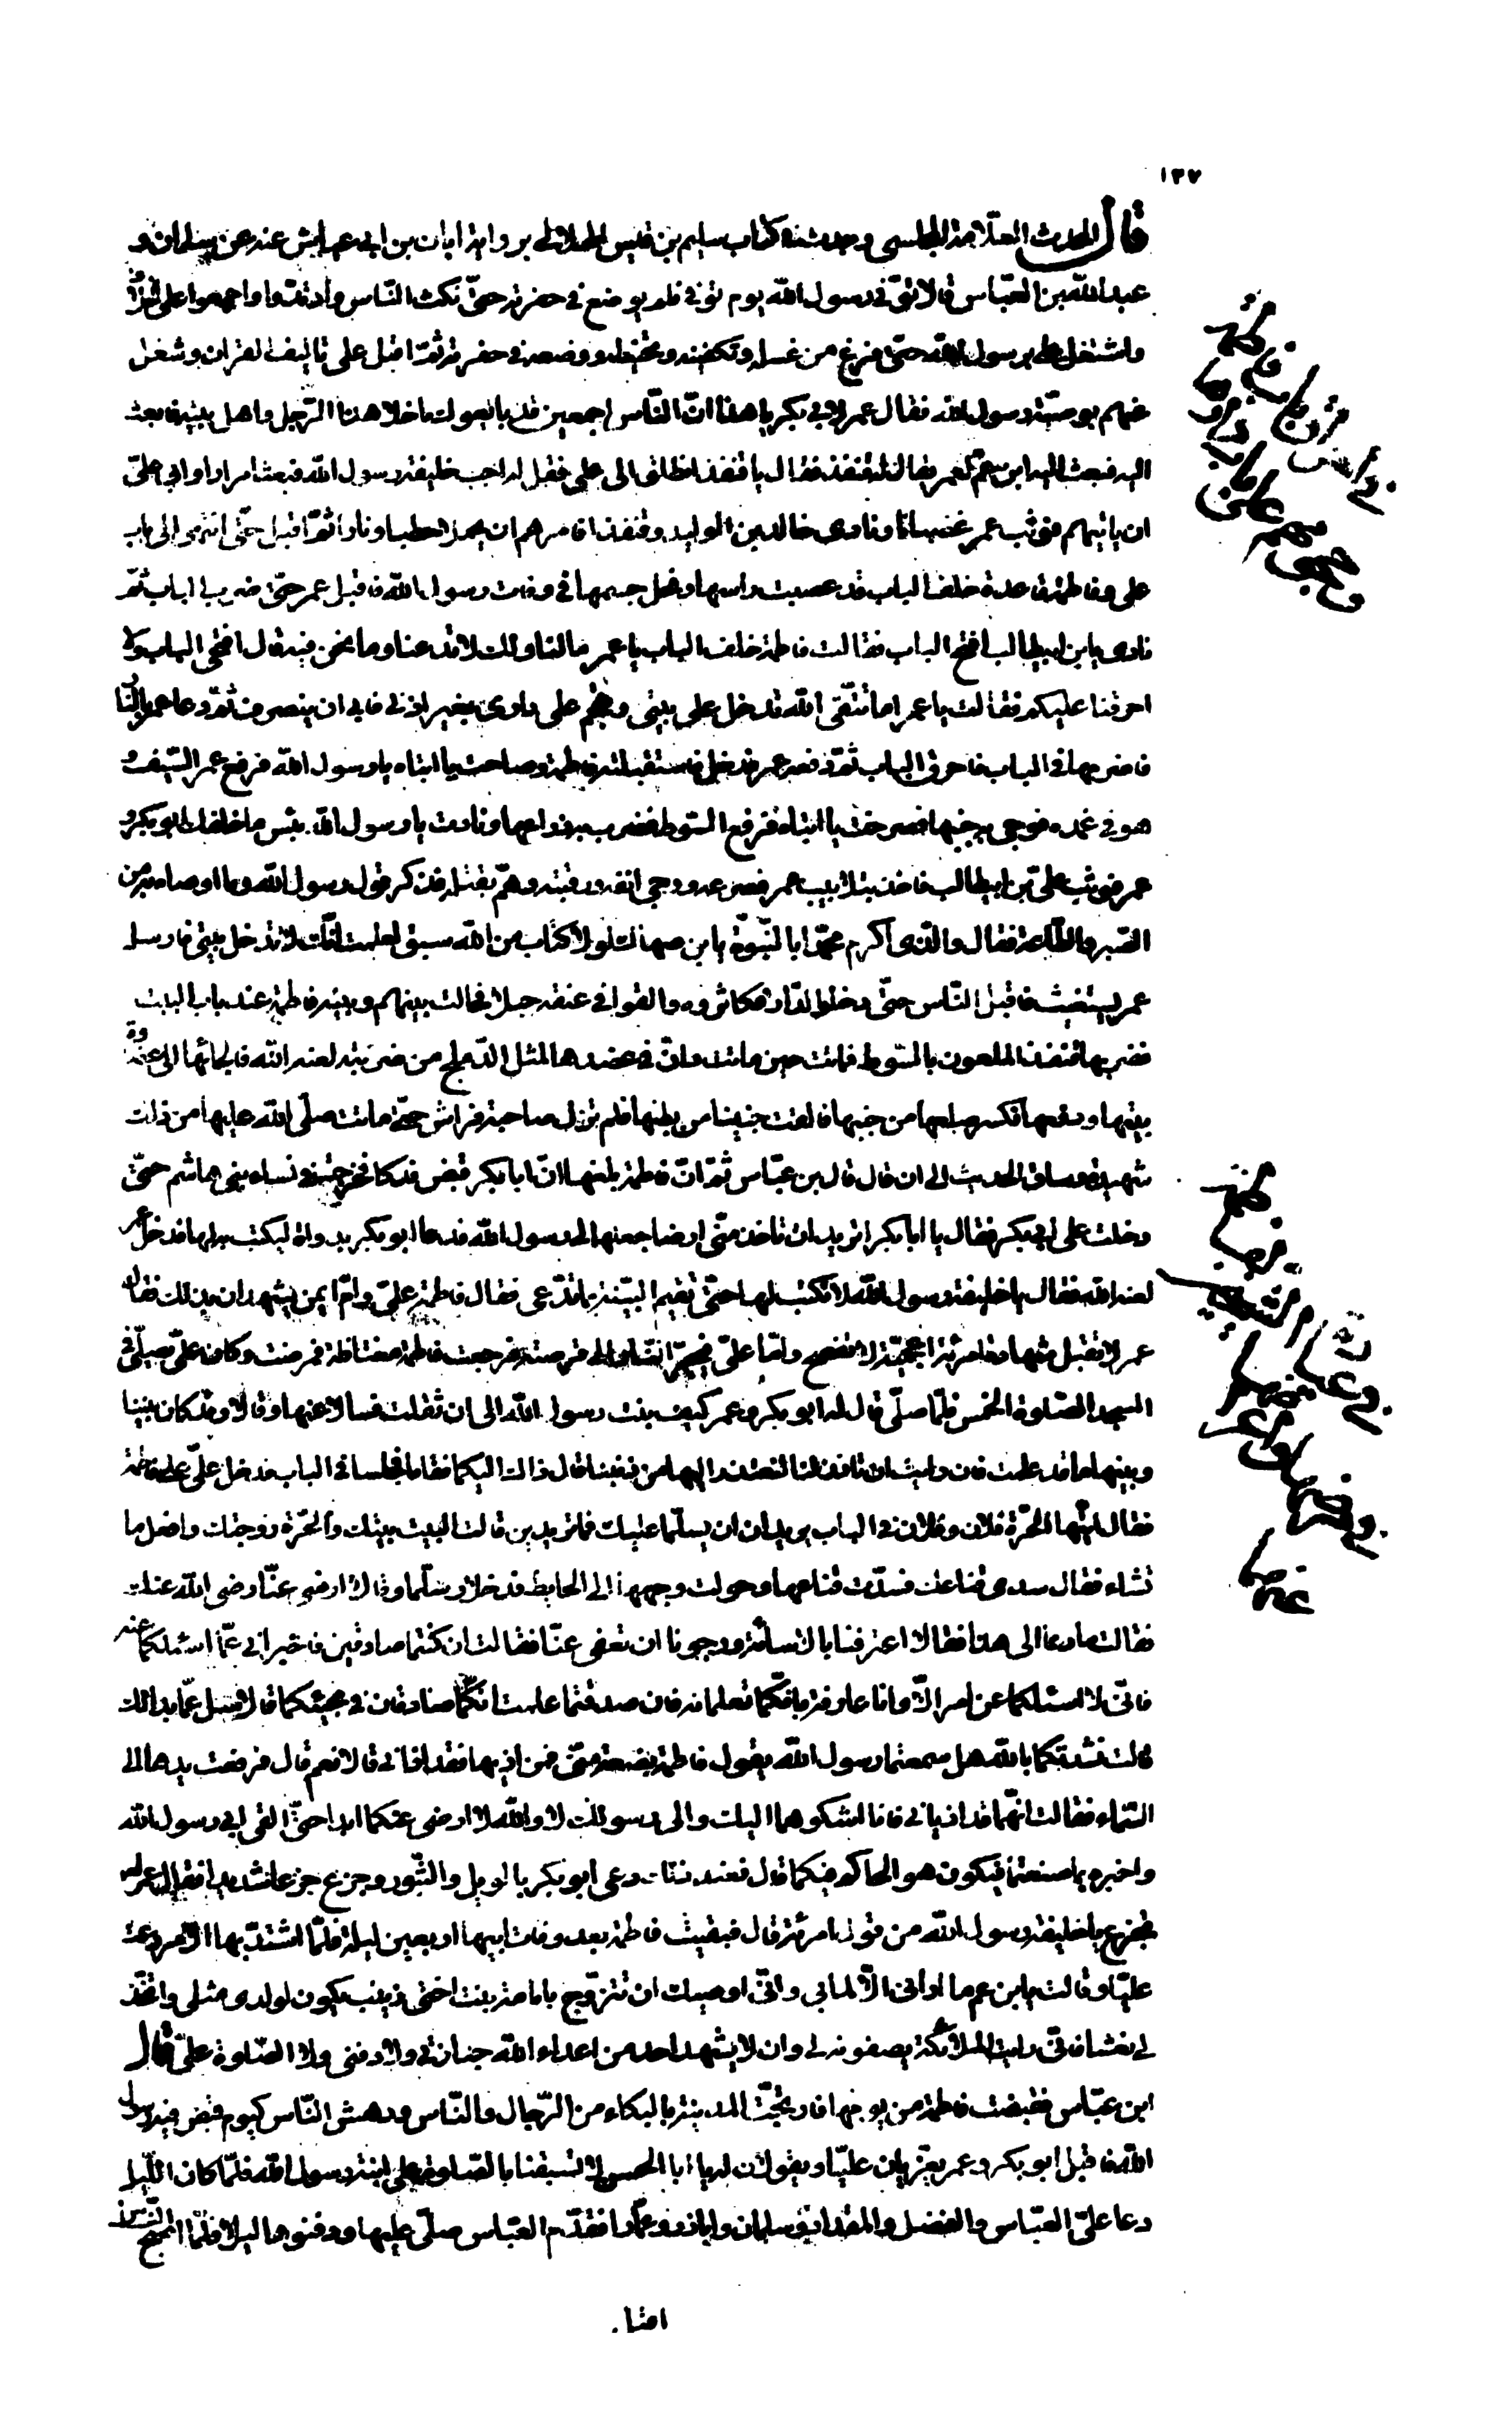 ١٣٧
قال المحدث العلامة المجلسي وجدت في كتاب سليم بن قيس الهلالي برواية ابان بن ابي عياش عنه عن سلمان و
عبد الله بن العباس قالا توفى رسول الله يوم توفي فلم يوضع في حفرته حتى نكث الناس وارتدوا واجمعوا على الخلاف
واشتغل على برسول الله حتى فرغ من غسله وتكفينه وتحنيطه ووضعه في حفرته ثم اقبل على تاليف القران وشغل
عنهم بوصية رسول الله فقال عمر لابي بكر يا هذا ان الناس اجمعين قد بايعوك ما خلا هذا الرجل واهل بيته فابعث
اليه فبعث اليه ابن عم لعمر يقال له قنفذ فقال يا قنفذ انطلق الى على فقل له اجب خليفة رسول الله فبعثا مرارا وابى على
ان ياتيهم فوثب عمر غضبانا ونادى خالد بن الوليد وقنفذا فامرهم ان يحملا حطبا ونارا ثم اقبل حتى انتهى الى باب
على وفاطمة قاعدة خلف الباب قد عصبت راسها ونحل جسمها في وفات رسول الله فاقبل عمر حتى ضرب الباب ثم
نادى يابن ابيطالب افتح الباب فقالت فاطمة خلف الباب يا عمر مالنا ولك لا تدعنا وما نحن فيه قال افتحى الباب والا
احرقنا عليكم فقالت يا عمر اما تتقى الله تدخل على بيتى وتهجم على دارى بغير اذنى فابى ان ينصرف ثم دعا عمر بالنار
فاضرمها في الباب فاحرق الباب ثم دفعه عمر فدخل فاستقبلته فاطمة وصاحت يا ابتاه يا رسول الله فرفع عمر السيف و
هو في غمده فوجى به جنبها فصرخت يا ابتاه فرفع السوط فضرب به ذراعها ونادت يا رسول الله بئس ما خلفك ابو بكر و
عمر فوثب على بن ابيطالب فاخذ بتلابيب عمر فصرعه ووجى انفه ورقبته وهم بقتله فذكر قول رسول الله وما اوصاه به من
الصبر والطاعة فقال والذى اكرم محمدا بالنبوة يابن صهاك لولا كتاب من الله سبق لعلمت انك لا تدخل بيتى فارسل
عمر يستغيث فاقبل الناس حتى دخلوا الدار فكاثروه والقوا في عنقه حبلا فحالت بينهم وبينه فاطمة عند باب البيت
فضربها قنفذ الملعون بالسوط فماتت حين ماتت وان في عضدها لمثل الدملج من ضربته لعنه الله فالجاها الى عضادة
بيتها ودفعها فكسر ضلعها من جنبها فالقت جنينا من بطنها فلم تزل صاحبة فراش حتى ماتت صلى الله عليها من ذلك
شهيدة وساق الحديث الى ان قال قال بن عباس ثم ان فاطمة بلغها ان ابا بكر قبض فدكا فخرجت في نساء بنى هاشم حتى
دخلت على ابي بكر فقال يا ابا بكر اتريد ان تاخذ منى ارضا جعلها لى رسول الله فدعا ابو بكر بدواة ليكتب به لها فدخل عمر
لعنه الله فقال يا خليفة رسول الله لا تكتب لها حتى تقيم البينة بما تدعى فقال فاطمة على وام ايمن يشهدان بذلك فقال
عمر لا تقبل شهادة امرئة اعجمية لا تفصح واما على فيجر النار الى قرصته فرجعت فاطمة مغتاظة فمرضت وكان على يصلى في
المسجد الصلوة الخمس فلما صلى قال له ابو بكر وعمر كيف بنت رسول الله الى ان ثقلت فسالا عنها وقالا وقد كان بيننا
وبينها ما قد علمت فان رايت ان تاذن لنا لنعتذر اليها من ذنبنا قال ذاك اليكما فقاما فجلسا في الباب فدخل على على فاطمة
فقال ايتها الحرة فلان وفلان في الباب يريدان ان يسلما عليك فما تريدين قالت البيت بيتك والحرة زوجتك وافعل ما
تشاء فقال سدى قناعك فسدت قناعها وحولت وجهها الى الحايط فدخلا وسلما وقالا ارضى عنا رضى الله عنك
فقالت ما دعا الى هذا فقالا اعترفنا بالاسائة ورجونا ان تعفى عنا فقالت ان كنتما صادقين فاخبرانى عما اسئلكما عنه
فانى لا اسئلكما عن امر الا وانا عارفة بانكما تعلمانه فان صدقتما علمت انكما صادقان في مجيئكما قالا سل عما بدا لك
قالت نشدتكما بالله هل سمعتما رسول الله يقول فاطمة بضعة منى فمن اذيها فقد اذانى قالا نعم قال فرفعت يدها الى
السماء فقالت انهما قد اذيانى فانا اشكوهما اليك والى رسولك لا والله لا ارضى عنكما ابدا حتى القى ابى رسول الله
واخبره بما صنعتما فيكون هو الحاكم فيكما قال فعند ذلك دعى ابو بكر بالويل والثبور وجزع جزعا شديدا فقال عمر
تجزع يا خليفة رسول الله من قول امرئة قال فبقيت فاطمة بعد وفات ابيها اربعين ليلة فلما اشتد بها الامر دعت
عليا وقالت يابن عم ما ارانى الا لمابى وانى اوصيك ان تتزوج بامامة بنت اختى زينب يكون لولدى مثلى واتخذ
لى نعشا فانى رايت الملائكة يصفونه لى وان لا يشهد احد من اعداء الله جنازتى ولا دفنى ولا الصلوة على قال
ابن عباس فقبضت فاطمة من يومها فارتجت المدينة بالبكاء من الرجال والنساء ودهش الناس كيوم قبض فيه رسول
الله فاقبل ابو بكر وعمر يعزيان عليا ويقولان له يا ابا الحسن لا تسبقنا بالصلوة على ابنة رسول الله فلما كان الليل
دعا على العباس والفضل والمقداد وسلمان واباذر وعمارا فقدم العباس صلى عليها ودفنوها ليلا فلما اصبح الناس
امثا.